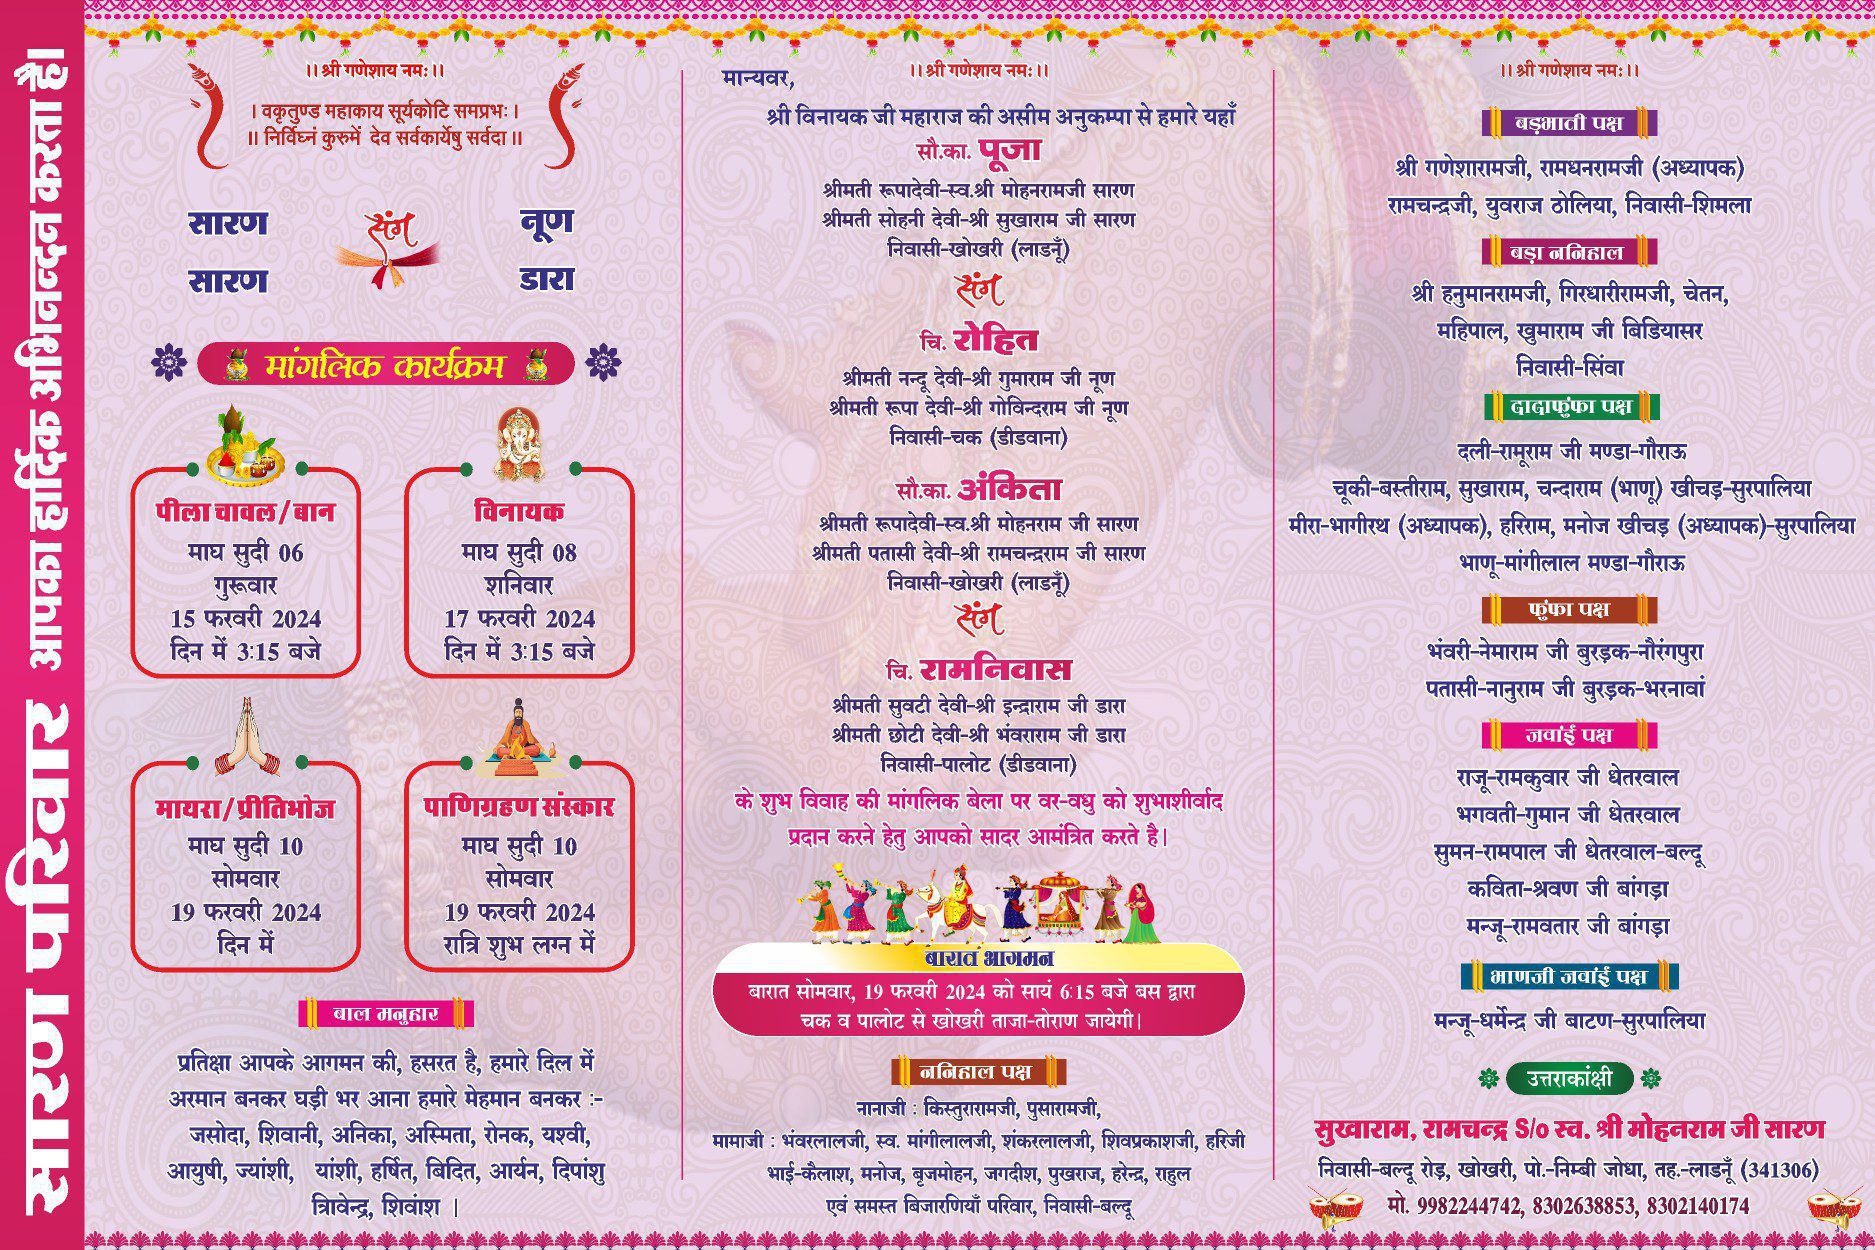 सारण परिवार आपका हार्दिक अभिनन्दन करता है।
।। श्री गणेशाय नमः ।।
। वकृतुण्ड महाकाय सूर्यकोटि समप्रभः ।
॥ निर्विघ्नं कुरुमें देव सर्वकार्येषु सर्वदा ॥
सारण संग नूण
सारण डारा
मांगलिक कार्यक्रम
पीला चावल/बान
माघ सुदी 06
गुरूवार
15 फरवरी 2024
दिन में 3:15 बजे
विनायक
माघ सुदी 08
शनिवार
17 फरवरी 2024
दिन में 3:15 बजे
मायरा/प्रीतिभोज
माघ सुदी 10
सोमवार
19 फरवरी 2024
दिन में
पाणिग्रहण संस्कार
माघ सुदी 10
सोमवार
19 फरवरी 2024
रात्रि शुभ लग्न में
बाल मनुहार
प्रतिक्षा आपके आगमन की, हसरत है, हमारे दिल में
अरमान बनकर घड़ी भर आना हमारे मेहमान बनकर :-
जसोदा, शिवानी, अनिका, अस्मिता, रोनक, यश्वी,
आयुषी, ज्यांशी, यांशी, हर्षित, बिदित, आर्यन, दिपांशु
त्रिावेन्द्र, शिवांश ।
।। श्री गणेशाय नमः ।।
मान्यवर,
श्री विनायक जी महाराज की असीम अनुकम्पा से हमारे यहाँ
सौ.का. पूजा
श्रीमती रूपादेवी-स्व.श्री मोहनरामजी सारण
श्रीमती सोहनी देवी-श्री सुखाराम जी सारण
निवासी-खोखरी (लाडनूँ)
संग
चि. रोहित
श्रीमती नन्दू देवी-श्री गुमाराम जी नूण
श्रीमती रूपा देवी-श्री गोविन्दराम जी नूण
निवासी-चक (डीडवाना)
सौ.का. अंकिता
श्रीमती रूपादेवी-स्व.श्री मोहनराम जी सारण
श्रीमती पतासी देवी-श्री रामचन्द्रराम जी सारण
निवासी-खोखरी (लाडनूँ)
संग
चि. रामनिवास
श्रीमती सुवटी देवी-श्री इन्द्राराम जी डारा
श्रीमती छोटी देवी-श्री भंवराराम जी डारा
निवासी-पालोट (डीडवाना)
के शुभ विवाह की मांगलिक बेला पर वर-वधु को शुभाशीर्वाद
प्रदान करने हेतु आपको सादर आमंत्रित करते है।
बारात आगमन
बारात सोमवार, 19 फरवरी 2024 को सायं 6:15 बजे बस द्वारा
चक व पालोट से खोखरी ताजा-तोराण जायेगी।
ननिहाल पक्ष
नानाजी : किस्तुरारामजी, पुसारामजी,
मामाजी : भंवरलालजी, स्व. मांगीलालजी, शंकरलालजी, शिवप्रकाशजी, हरिजी
भाई-कैलाश, मनोज, बृजमोहन, जगदीश, पुखराज, हरेन्द्र, राहुल
एवं समस्त बिजारणियाँ परिवार, निवासी-बल्दू
।। श्री गणेशाय नमः ।।
बड़भाती पक्ष
श्री गणेशारामजी, रामधनरामजी (अध्यापक)
रामचन्द्रजी, युवराज ठोलिया, निवासी-शिमला
बड़ा ननिहाल
श्री हनुमानरामजी, गिरधारीरामजी, चेतन,
महिपाल, खुमाराम जी बिडियासर
निवासी-सिंवा
दादाफुंफा पक्ष
दली-रामूराम जी मण्डा-गौराऊ
चूकी-बस्तीराम, सुखाराम, चन्दाराम (भाणू) खीचड़-सुरपालिया
मीरा-भागीरथ (अध्यापक), हरिराम, मनोज खीचड़ (अध्यापक)-सुरपालिया
भाणू-मांगीलाल मण्डा-गौराऊ
फुंफा पक्ष
भंवरी-नेमाराम जी बुरड़क-नौरंगपुरा
पतासी-नानुराम जी बुरड़क-भरनावां
जवांई पक्ष
राजू-रामकुवार जी धेतरवाल
भगवती-गुमान जी धेतरवाल
सुमन-रामपाल जी धेतरवाल-बल्दू
कविता-श्रवण जी बांगड़ा
मन्जू-रामवतार जी बांगड़ा
भाणजी जवांई पक्ष
मन्जू-धर्मेन्द्र जी बाटण-सुरपालिया
उत्तराकांक्षी
सुखाराम, रामचन्द्र S/o स्व. श्री मोहनराम जी सारण
निवासी-बल्दू रोड़, खोखरी, पो.-निम्बी जोधा, तह.-लाडनूँ (341306)
मो. 9982244742, 8302638853, 8302140174